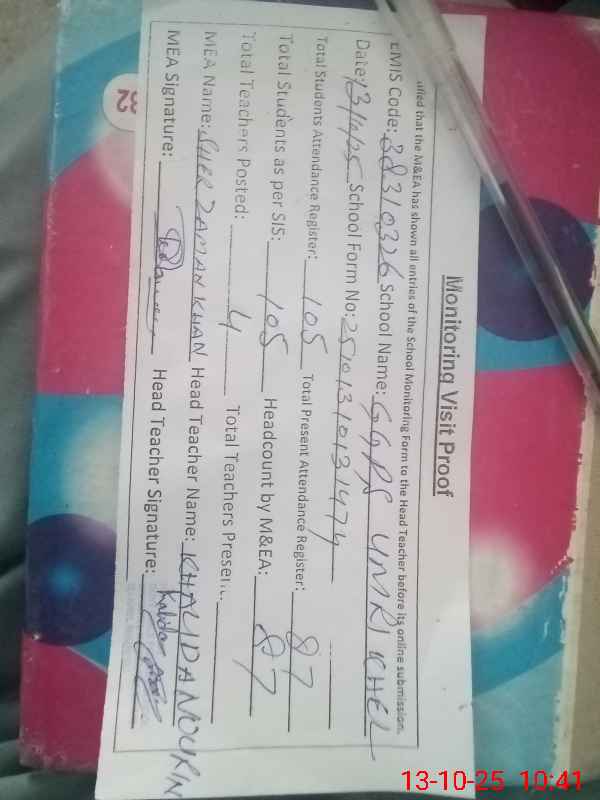 Monitoring Visit Proof
that the M&EA has shown all entries of the School Monitoring Form to the Head Teacher before its online submission.
EMIS Code: 38310326 School Name: GGPS UMRI KHEL
Date: 13/10/25 School Form No: 25101310131474
Total Students Attendance Register: 105 Total Present Attendance Register: 87
Total Students as per SIS: 105 Headcount by M&EA: 87
Total Teachers Posted: 4 Total Teachers Present:
MEA Name: SHER ZAMAN KHAN Head Teacher Name: KHALIDA NOURIN
MEA Signature: Head Teacher Signature: Kalida
32
13-10-25 10:41